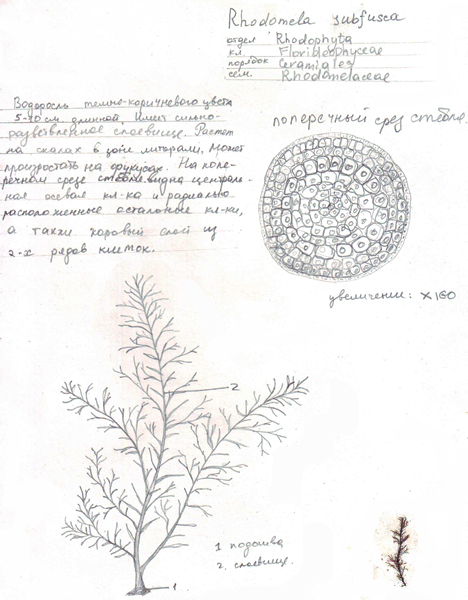 Rhodomela subfusca
отдел Rhodophyta
кл. Florideophyceae
порядок Ceramiales
сем. Rhodomelaceae
Водоросль темно-коричневого цвета
5-40 см длинной, имеет сильно-
разветвленное слоевище. Растет
на скалах в зоне литорали, может
произростать на фукусах. На попе-
речном срезе стебля видна централь-
ная осевая кл-ка и радиально
расположенные остальные кл-ки,
а также коровый слой из
2-х рядов клеток.
поперечный срез стебля.
увеличении: х160
2
1 подошва
2. слоевище.
1